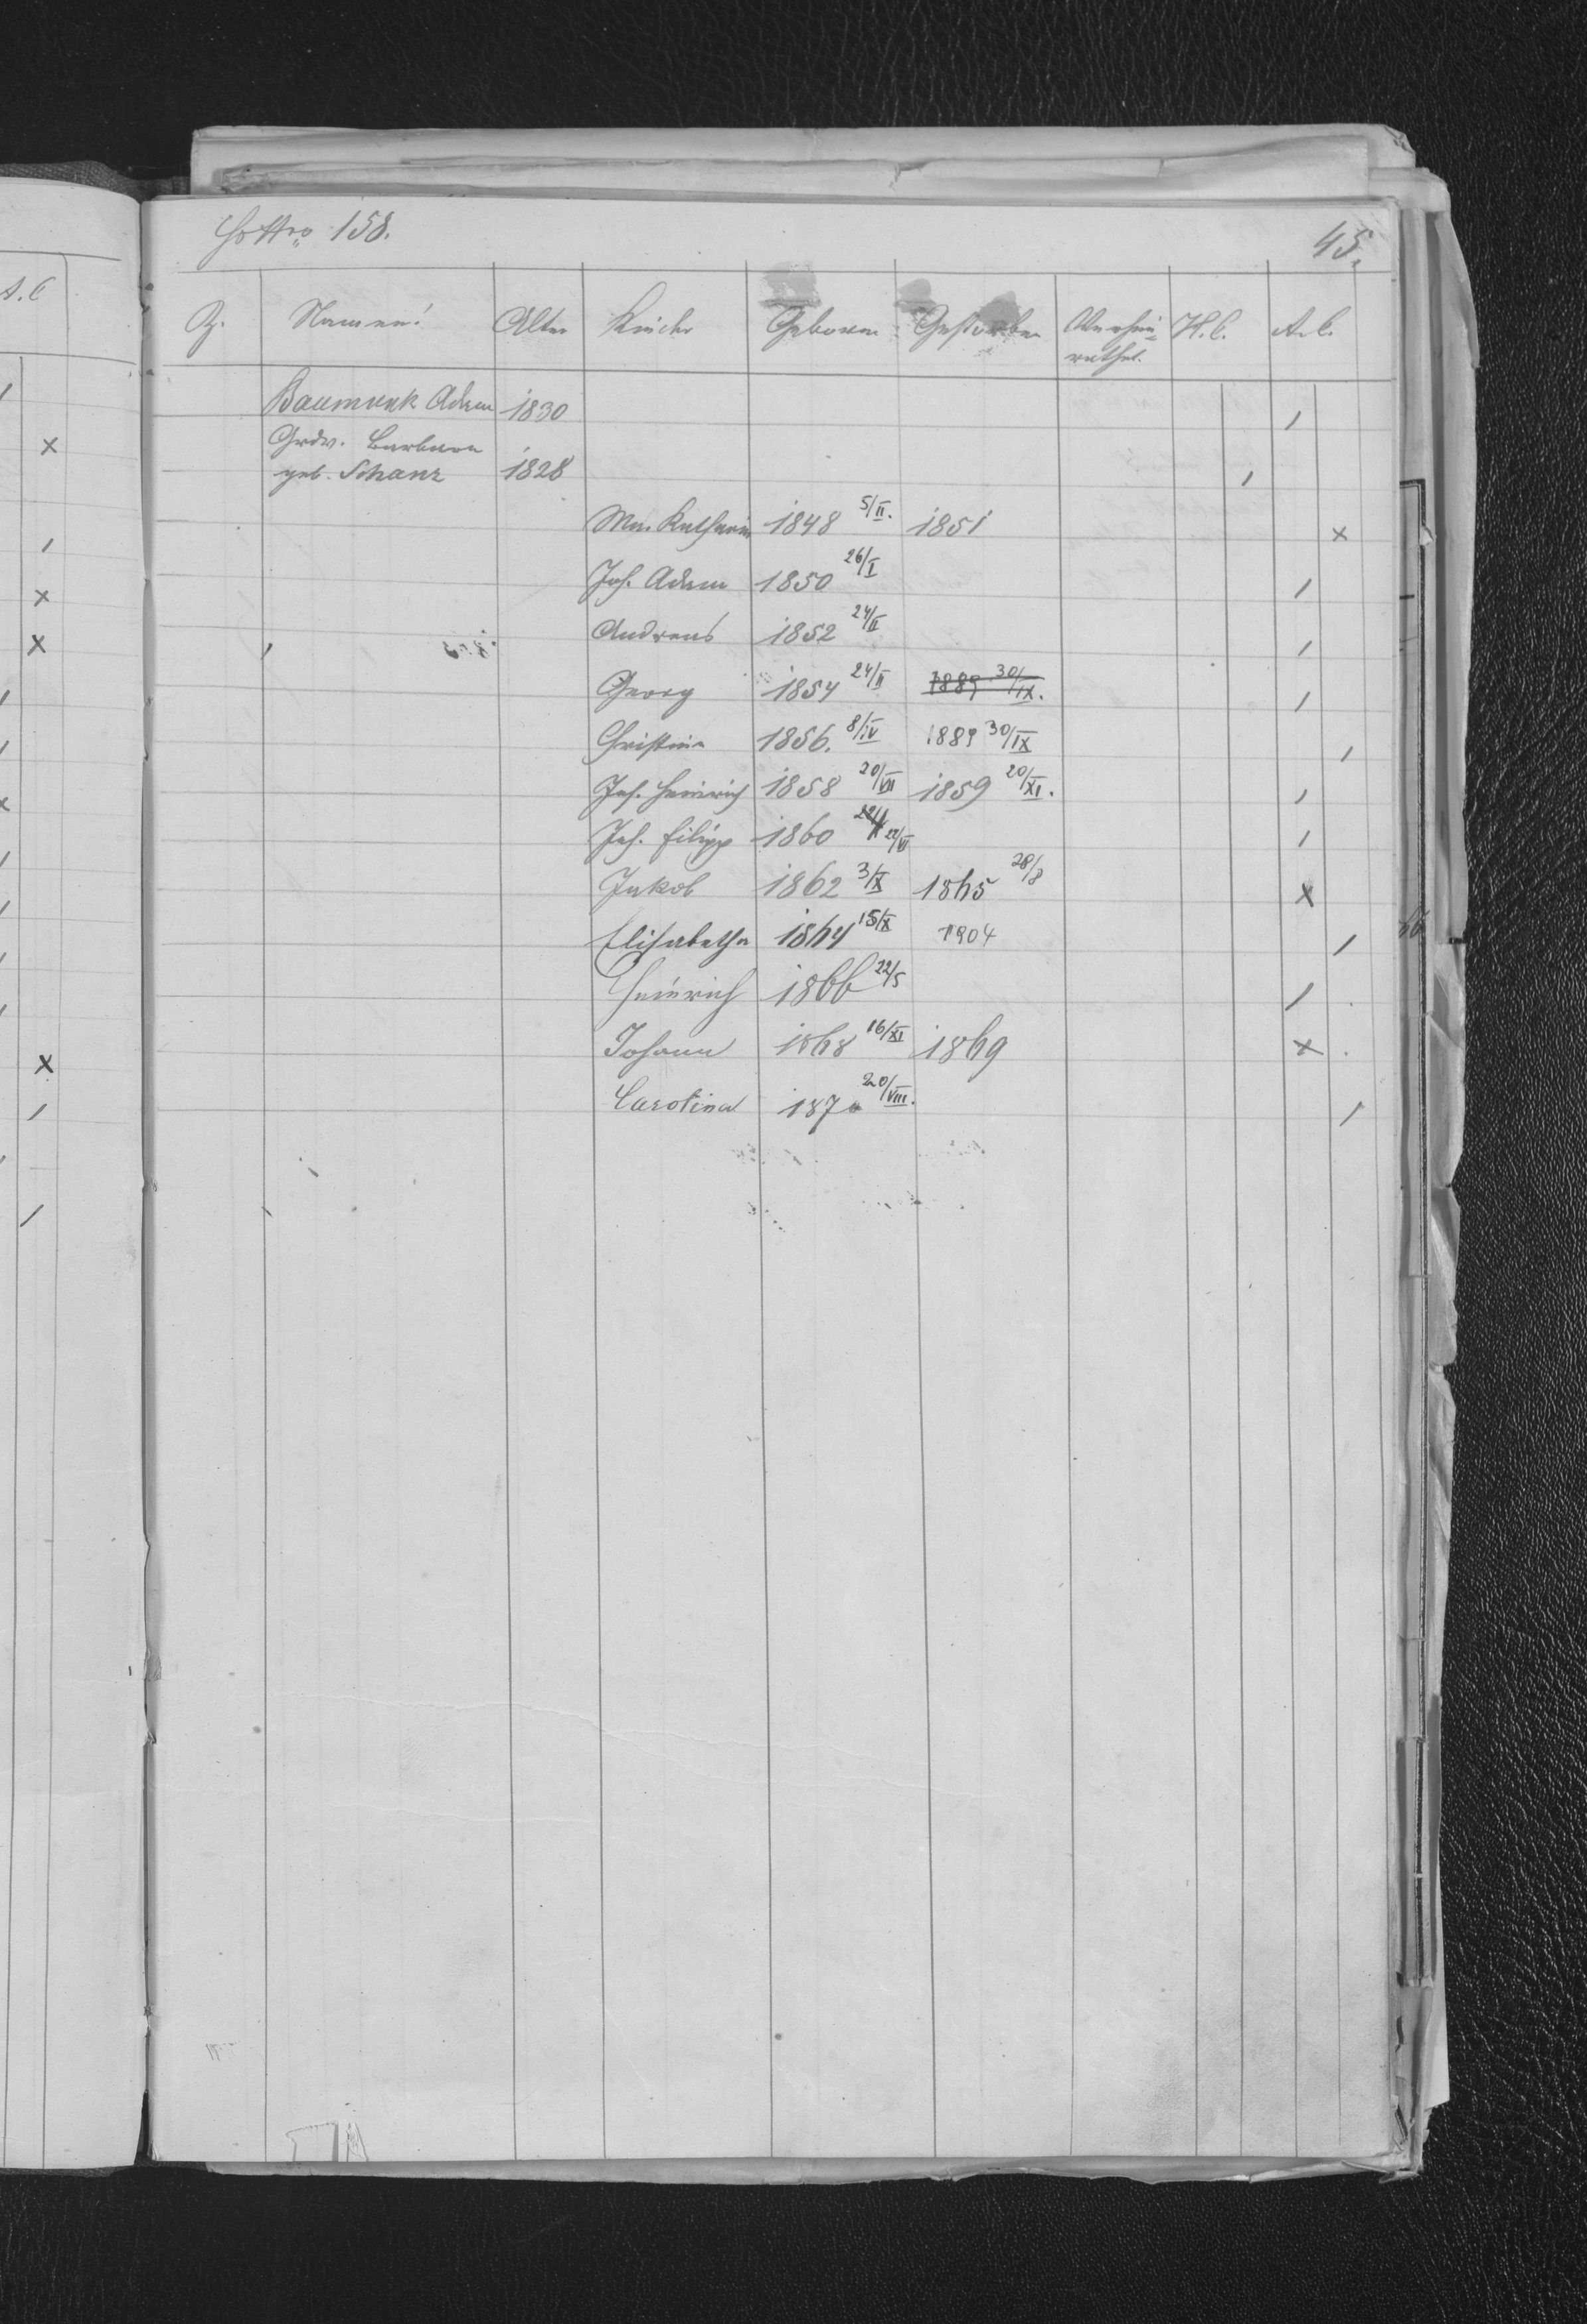 Hs Nro 158.
45.
Z. Namen! Alter Kinder Geboren Gestorben Verhei=rathet. H. C. A. C.
A. C
Baumunk Adam 1830 /
Grdw. Barbara
geb. Schanz 1828 /
Mar. Katharin 1848 5/II. 1851 x
Joh. Adam 1850 26/I /
Andreas 1852 24/II /
Georg 1854 24/II 1889 30/IX. /
Christina 1856. 8/IV 1889 30/IX /
Joh. Heinrich 1858 20/VII 1859 20/XI. /
Joh. Filipp 1860 22/VI /
Jakob 1862 3/X 1865 28/8 x
Elisabetha 1864 15/X 1904 /
Heinrich 1866 22/5 /
Johann 1868 16/XI 1869 x
Carolina 1870 20/VIII. /